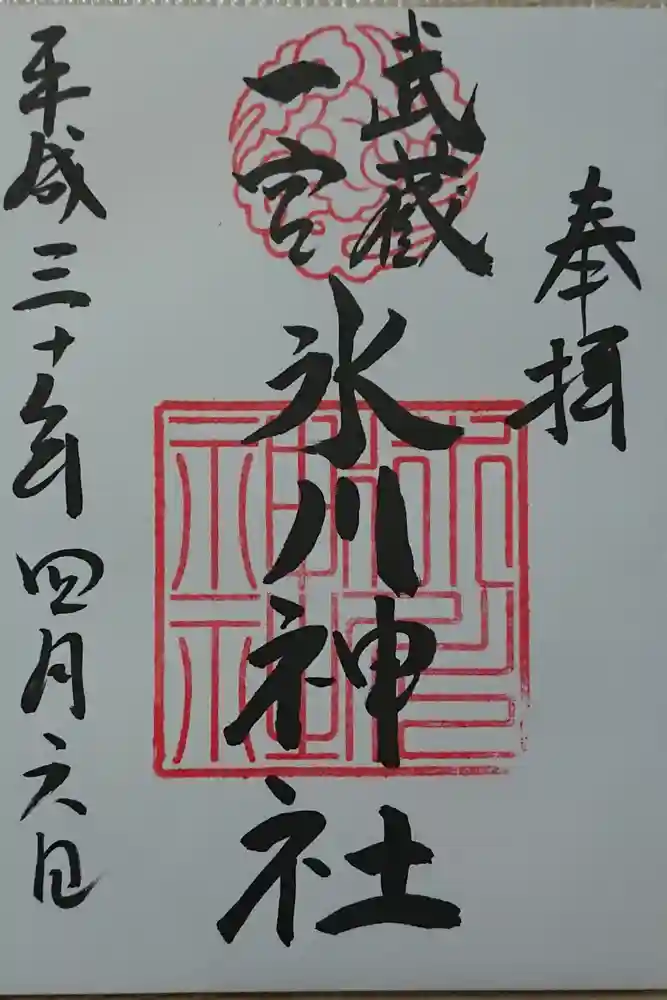 奉拝
武蔵
一宮
氷川神社
平成三十年四月六日